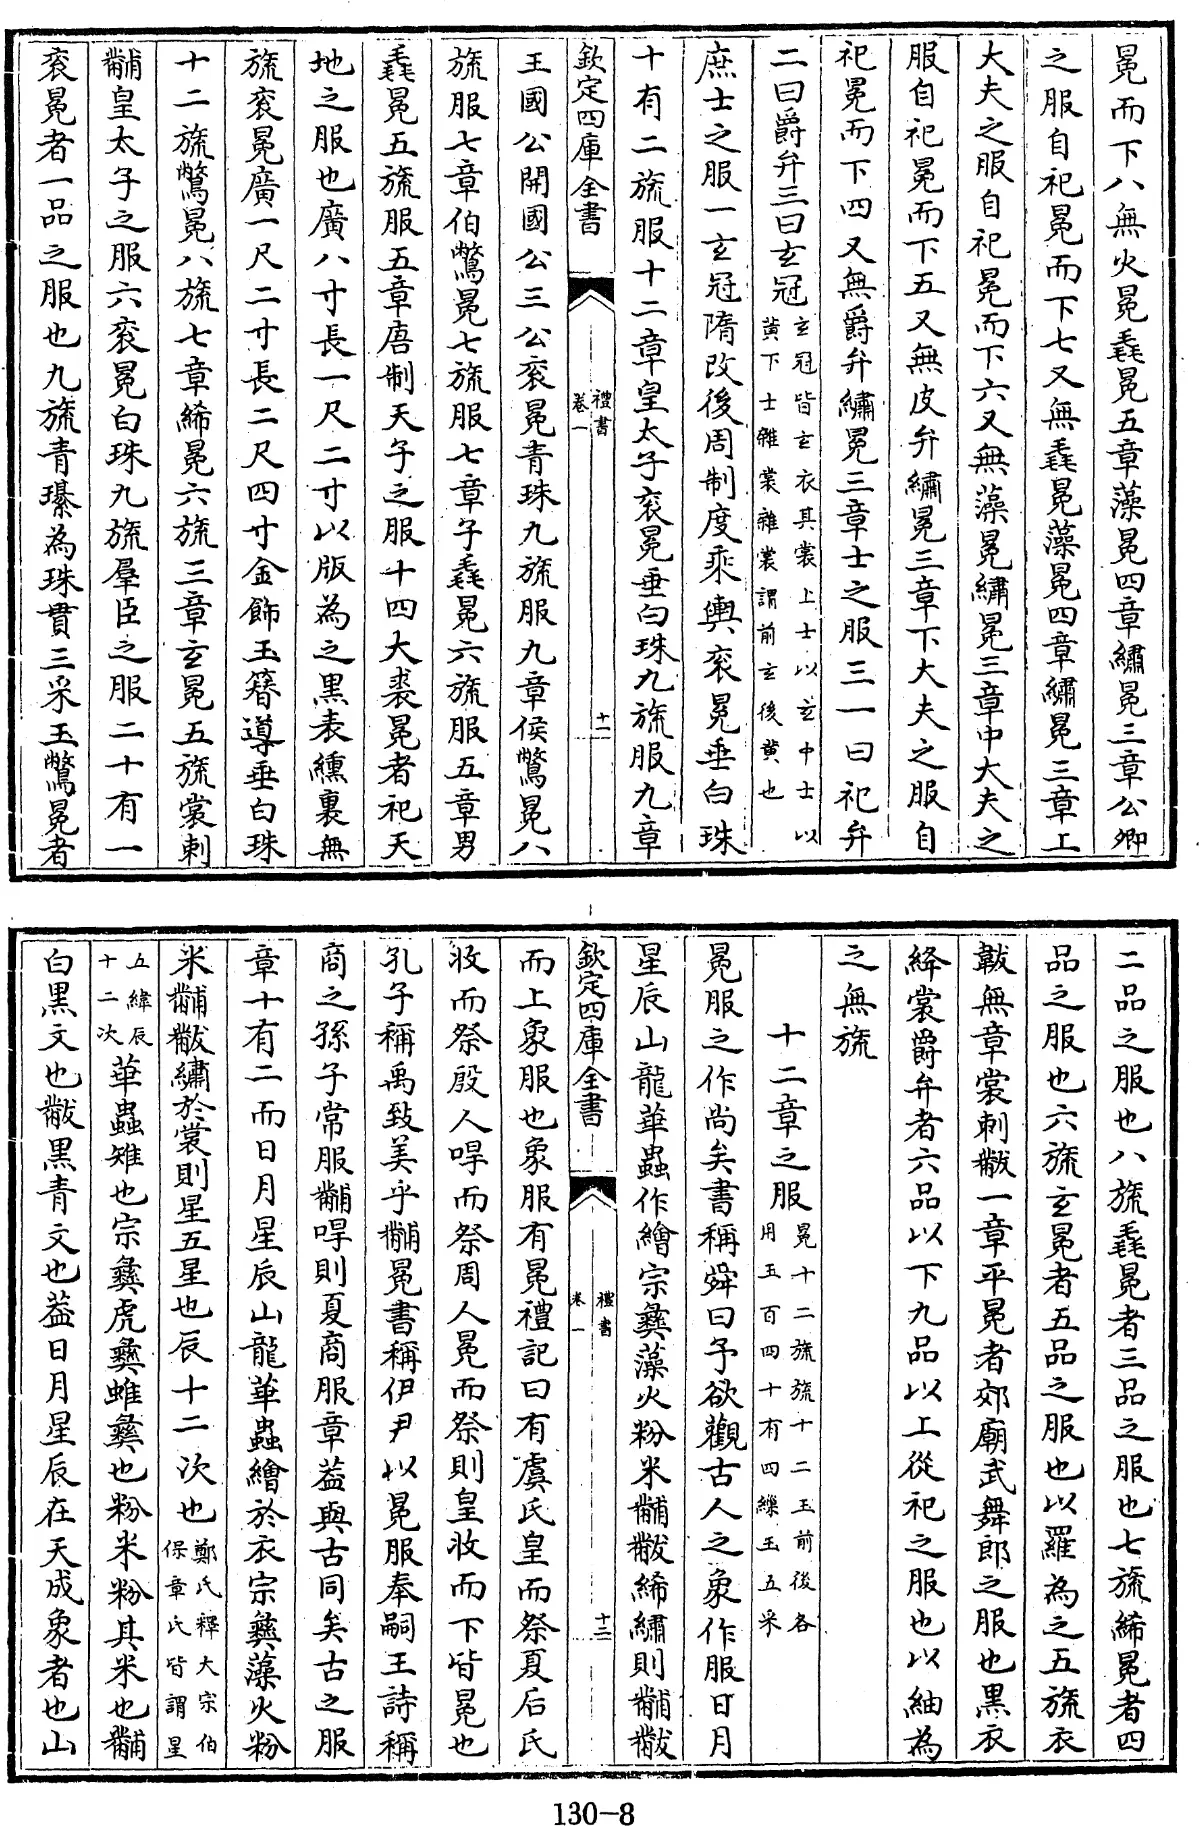 冕而下八無火冕毳冕五章藻冕四章繡冕三章公卿
之服自祀冕而下七又無毳冕藻冕四章繡冕三章上
大夫之服自祀冕而下六又無藻冕繡冕三章中大夫之
服自祀冕而下五又無皮弁繡冕三章下大夫之服自
祀冕而下四又無爵弁繡冕三章士之服三一曰祀弁
二曰爵弁三曰玄冠玄冠皆玄衣其裳上士以玄中士以
黄下士雜裳雜裳謂前玄後黄也
庶士之服一玄冠隋改後周制度乘輿衮冕垂白珠
十有二旒服十二章皇太子衮冕垂白珠九旒服九章
欽定四庫全書
禮書
卷一
十一
王國公開國公三公衮冕青珠九旒服九章侯鷩冕八
旒服七章伯鷩冕七旒服七章子毳冕六旒服五章男
毳冕五旒服五章唐制天子之服十四大裘冕者祀天
地之服也廣八寸長一尺二寸以版為之黒表纁裏無
旒衮冕廣一尺二寸長二尺四寸金飾玉簪導垂白珠
十二旒鷩冕八旒七章絺冕六旒三章玄冕五旒裳刺
黼皇太子之服六衮冕白珠九旒羣臣之服二十有一
衮冕者一品之服也九旒青璪為珠貫三采玉鷩冕者
二品之服也八旒毳冕者三品之服也七旒絺冕者四
品之服也六旒玄冕者五品之服也以羅為之五旒衣
韍無章裳刺黻一章平冕者郊廟武舞郎之服也黒衣
絳裳爵弁者六品以下九品以上從祀之服也以紬為
之無旒
十二章之服冕十二旒旒十二玉前後各
用玉百四十有四繅玉五采
冕服之作尚矣書稱舜曰予欲觀古人之象作服日月
星辰山龍華蟲作繪宗彝藻火粉米黼黻絺繡則黼黻
欽定四庫全書
禮書
卷一
十二
而上象服也象服有冕禮記曰有虞氏皇而祭夏后氏
收而祭殷人冔而祭周人冕而祭則皇收而下皆冕也
孔子稱禹致美乎黼冕書稱伊尹以冕服奉嗣王詩稱
商之孫子常服黼冔則夏商服章葢與古同矣古之服
章十有二而日月星辰山龍華蟲繪於衣宗彝藻火粉
米黼黻繡於裳則星五星也辰十二次也鄭氏釋大宗伯
保章氏皆謂星
五緯辰
十二次華蟲雉也宗彝虎彝蜼彝也粉米粉其米也黼
白黒文也黻黒青文也葢日月星辰在天成象者也山
130-8